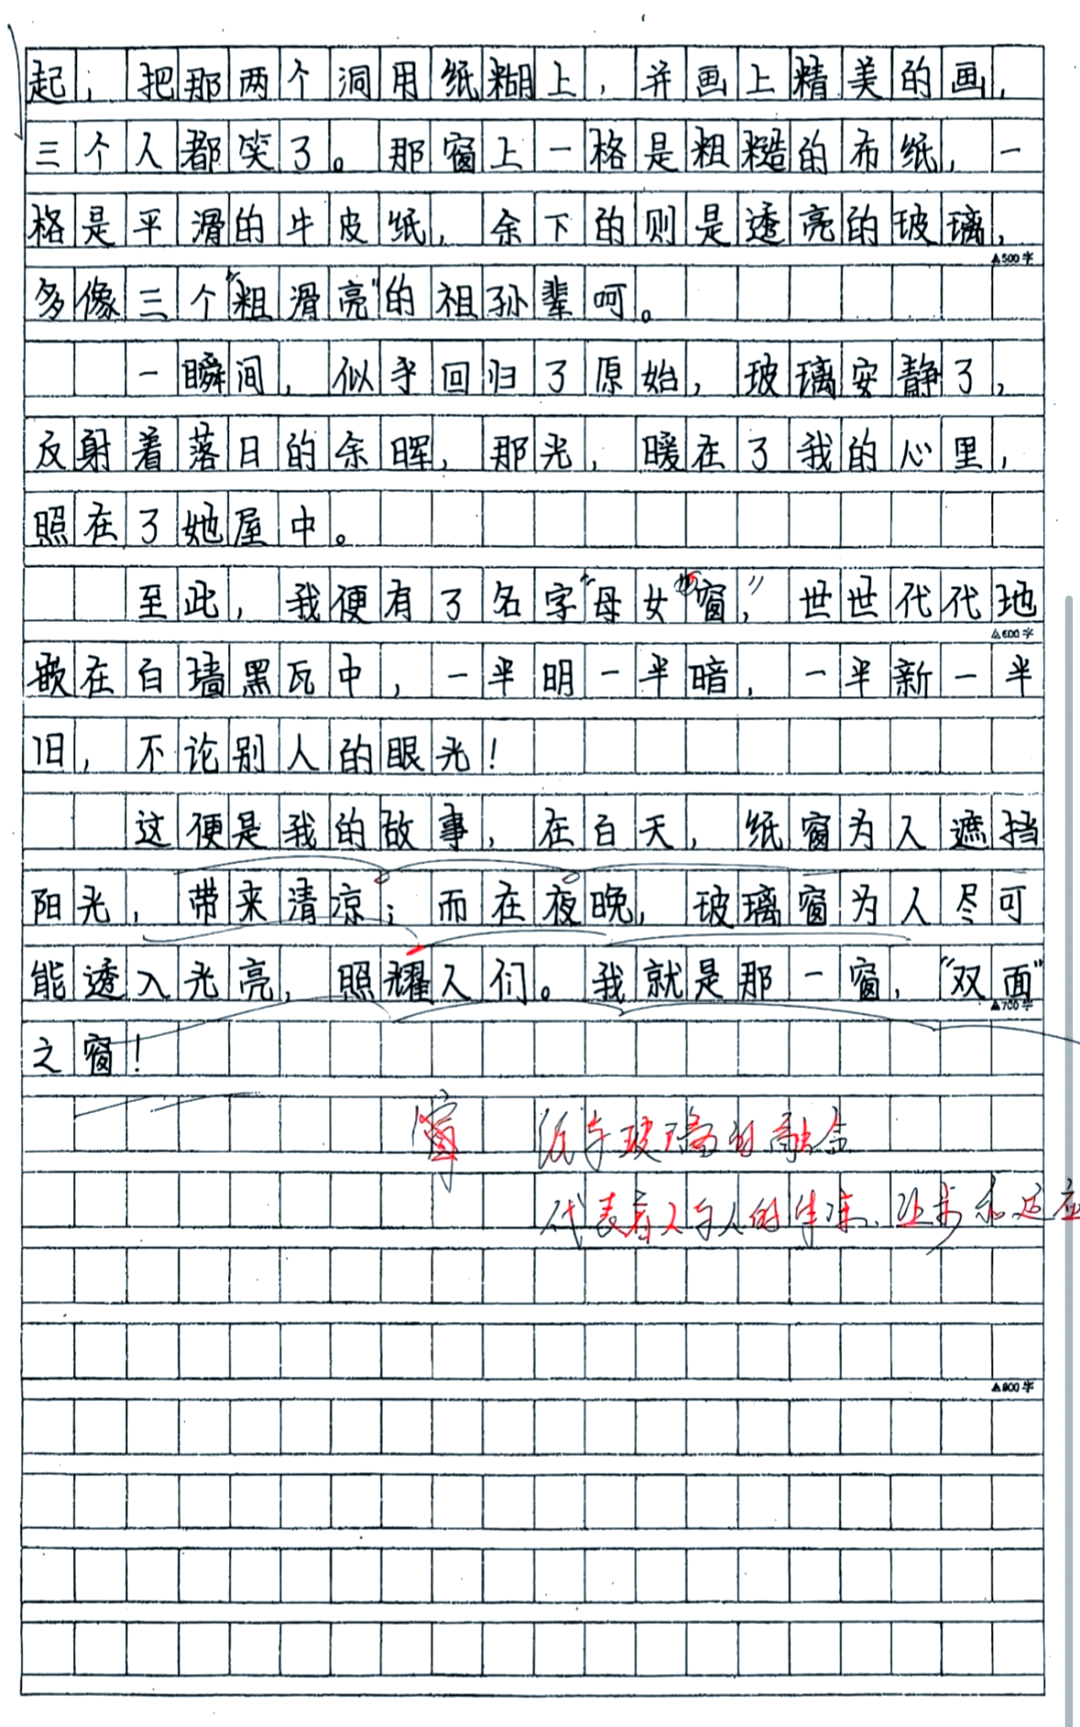 起，把那两个洞用纸糊上，并画上精美的画，
三个人都笑了。那窗上一格是粗糙的布纸，一
格是平滑的牛皮纸，余下的则是透亮的玻璃，
▲500字
多像三个“粗滑亮”的祖孙辈呵。
一瞬间，似乎回归了原始，玻璃安静了，
反射着落日的余晖，那光，暖在了我的心里，
照在了她屋中。
至此，我便有了名字“母女”窗，”世世代代地
▲600字
嵌在白墙黑瓦中，一半明一半暗，一半新一半
旧，不论别人的眼光！
这便是我的故事，在白天，纸窗为人遮挡
阳光，带来清凉；而在夜晚，玻璃窗为人尽可
能透入光亮，照耀人们。我就是那一窗，“双面”
▲700字
之窗！
窗 纸与玻璃的融合
代表着人与人的 让步和适应
▲800字